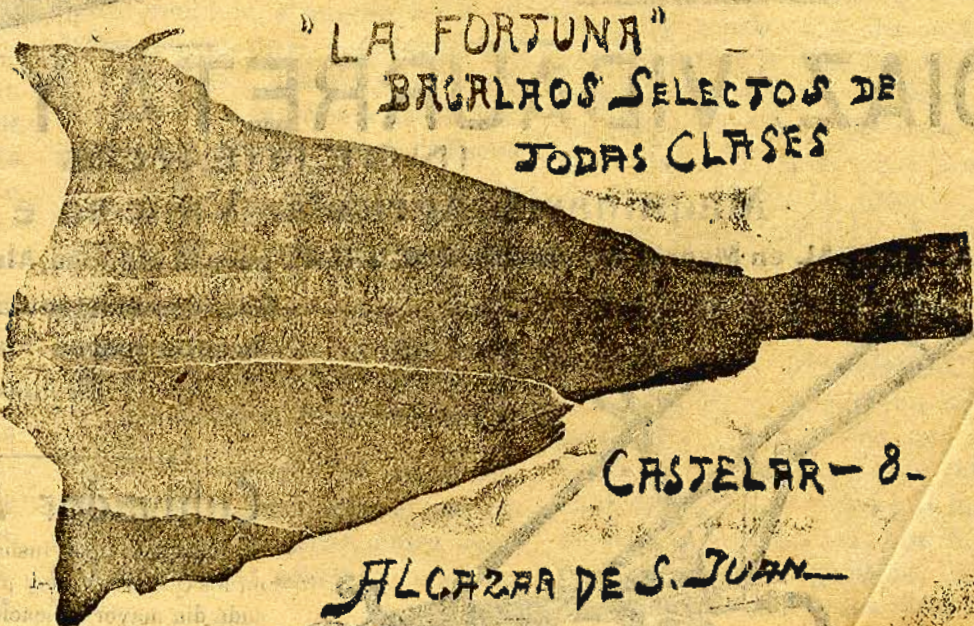 "LA FORTUNA"
BACALAOS SELECTOS DE
TODAS CLASES
CASTELAR - 8 -
ALCAZAR DE S. JUAN